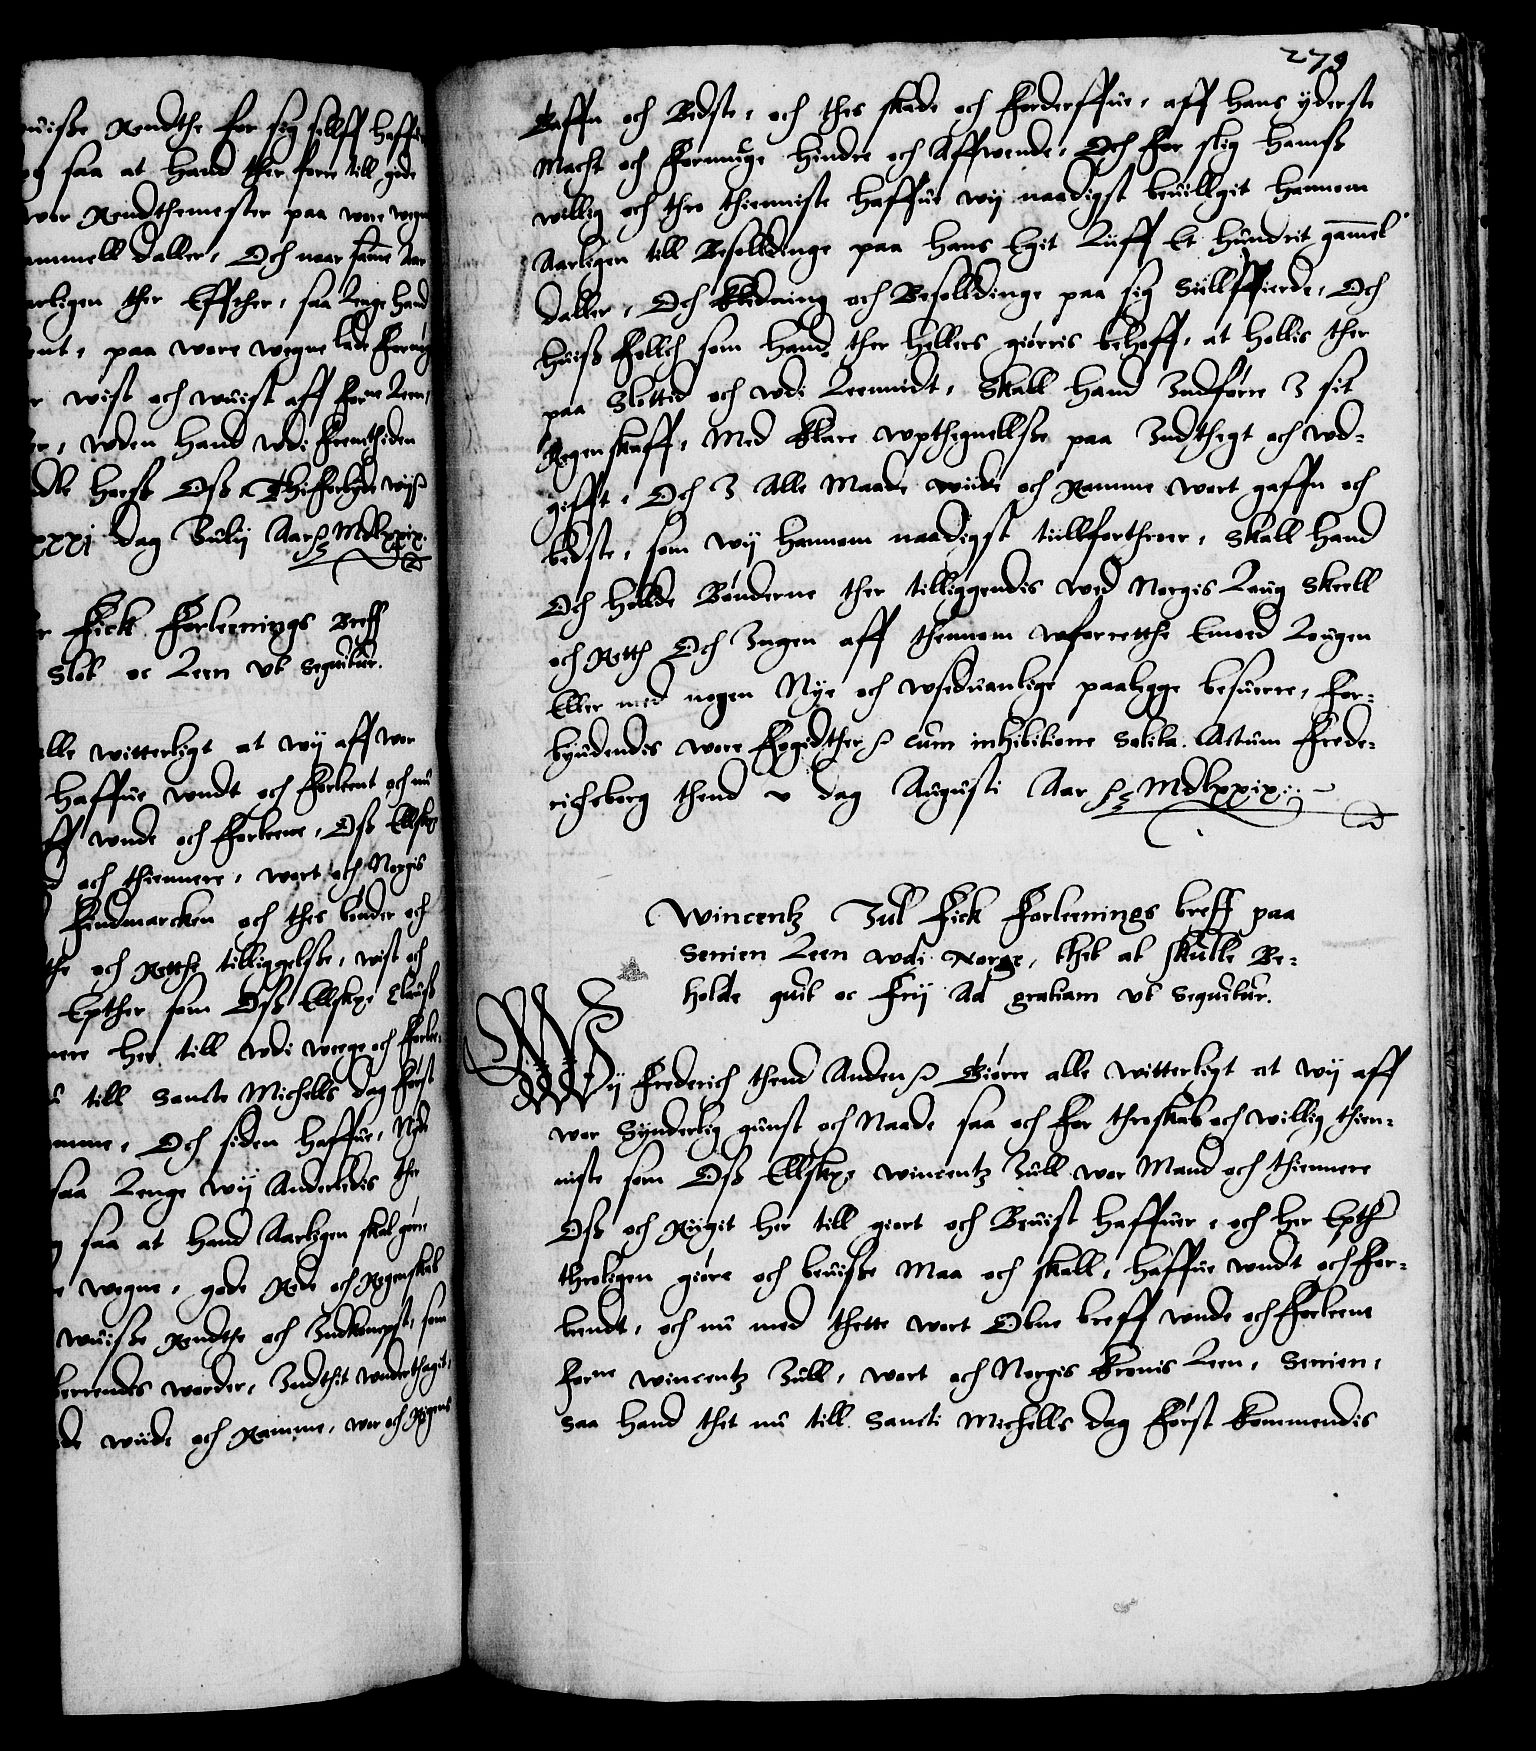 uisse Rendthe for sig sellff haffue
og saa at hand ther forre till gode
vor Rendthemester paa wore wegne
ammell daller, Och naar samme Aar
arligen ther Effther, saa lenge hand
ent, paa wore wegne lade
r wist och wuist aff forne Leen,
er, wden hand wdi fremthiden
dag Julij Aar etc. Mdlxxix.
r Fick Forleenings Breff
Slot oc Leen vt sequitur.
alle witterligt at wij aff wor
haffue wndt och forleent och nu
ff wnde och forleene, Oss Elskelige
d och thiennere, wort och Norgis
Findmarcken och thes bønder och
the och Retthe tilliggelsse, wist och
Epther som Oss Elskelige Clauss
nere her till wdi werge och forle-
u till Sancte Michells dag først
mme, Och siden haffue, Nyde
saa Lenge wij Anderledis ther
g saa at hand Aarligen skal giøre
e wegne, gode Rede och Regenskab
wuisse Rendthe och Indkompst, som
berrendes worder, Indthet wnderthagit,
de wiide och Ramme, wor och Rigens
279
Gaffn och Bedste, och thes skade och forderffue, aff hans yderste
Macht och formuge hindre och Affwende, Och for slig hanss
willig och thro thienniste haffue wij naadigst beuillgit hannom
Aarligen till Besolldinge paa hans Egit Liiff Et hundrit gammel
daller, Och Kledning och Besolldinge paa sig Siellffierde, Och
huiss follch som hand ther hellers giørris behoff, at hollis ther
paa Slottid och wdi Leennidt, Skall hand Indføre I sit
Regenskaff, Med klare wpthegnellsse paa Indthegt och wd-
gifft, Och I Alle Maade wiide och Ramme wort gaffn och
bedste, som wij hannom naadigst tiillforthroer, Skall hand
Och hollde Bønderne ther tilliggendis wed Norgis Loug Skeell
och Retth Och Ingen aff thennom wforretthe Emoed Lougen
Eller med nogen Nye och wseduanlige paalegge besuerre, For-
byudendis wore fogidther etc. cum inhibitione Solita. Actum Frede-
richsborg thend v dag Augusti Aar etc. Mdlxxix.
Wincentz Jul Fick Forleenings breff paa
Senien Leen wdi Norge, thet at skulle Be-
holde quit oc Frij Ad gratiam vt Sequitur.
Wij Frederich thend Anden etc. Giørre alle witterligt at wij aff
wor Synderlig gunst och Naade saa och for throskab och willig thien-
niste som Oss Elskelige Wincentz Jull wor Mand och thiennere
Oss och Riigit her till giort och Beuist haffuer, och her Epther
throligen giøre och beuisse Maa och skall, haffue wndt och for-
lendt, och nu med thette wort Obne breff wnde och forleene
forne Wincentz Jull, wort och Norgis Kronis Leen, Senien,
Saa hand thet nu till Sancti Michells dag først kommendis